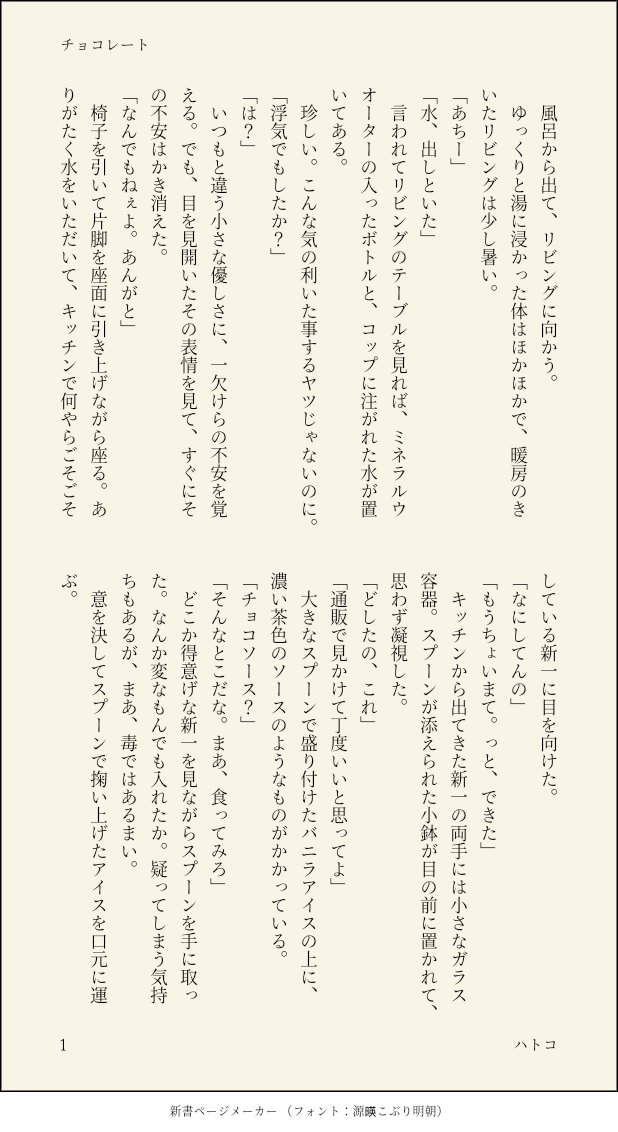 チョコレート
　風呂から出て、リビングに向かう。
　ゆっくりと湯に浸かった体はほかほかで、暖房のき
いたリビングは少し暑い。
「あちー」
「水、出しといた」
　言われてリビングのテーブルを見れば、ミネラルウ
オーターの入ったボトルと、コップに注がれた水が置
いてある。
　珍しい。こんな気の利いた事するヤツじゃないのに。
「浮気でもしたか？」
「は？」
　いつもと違う小さな優しさに、一欠けらの不安を覚
える。でも、目を見開いたその表情を見て、すぐにそ
の不安はかき消えた。
「なんでもねぇよ。あんがと」
　椅子を引いて片脚を座面に引き上げながら座る。あ
りがたく水をいただいて、キッチンで何やらごそごそ
している新一に目を向けた。
「なにしてんの」
「もうちょいまて。っと、できた」
　キッチンから出てきた新一の両手には小さなガラス
容器。スプーンが添えられた小鉢が目の前に置かれて、
思わず凝視した。
「どしたの、これ」
「通販で見かけて丁度いいと思ってよ」
　大きなスプーンで盛り付けたバニラアイスの上に、
濃い茶色のソースのようなものがかかっている。
「チョコソース？」
「そんなとこだな。まあ、食ってみろ」
　どこか得意げな新一を見ながらスプーンを手に取っ
た。なんか変なもんでも入れたか。疑ってしまう気持
ちもあるが、まあ、毒ではあるまい。
　意を決してスプーンで掬い上げたアイスを口元に運
ぶ。
1
ハトコ
新書ページメーカー（フォント：源暎こぶり明朝）